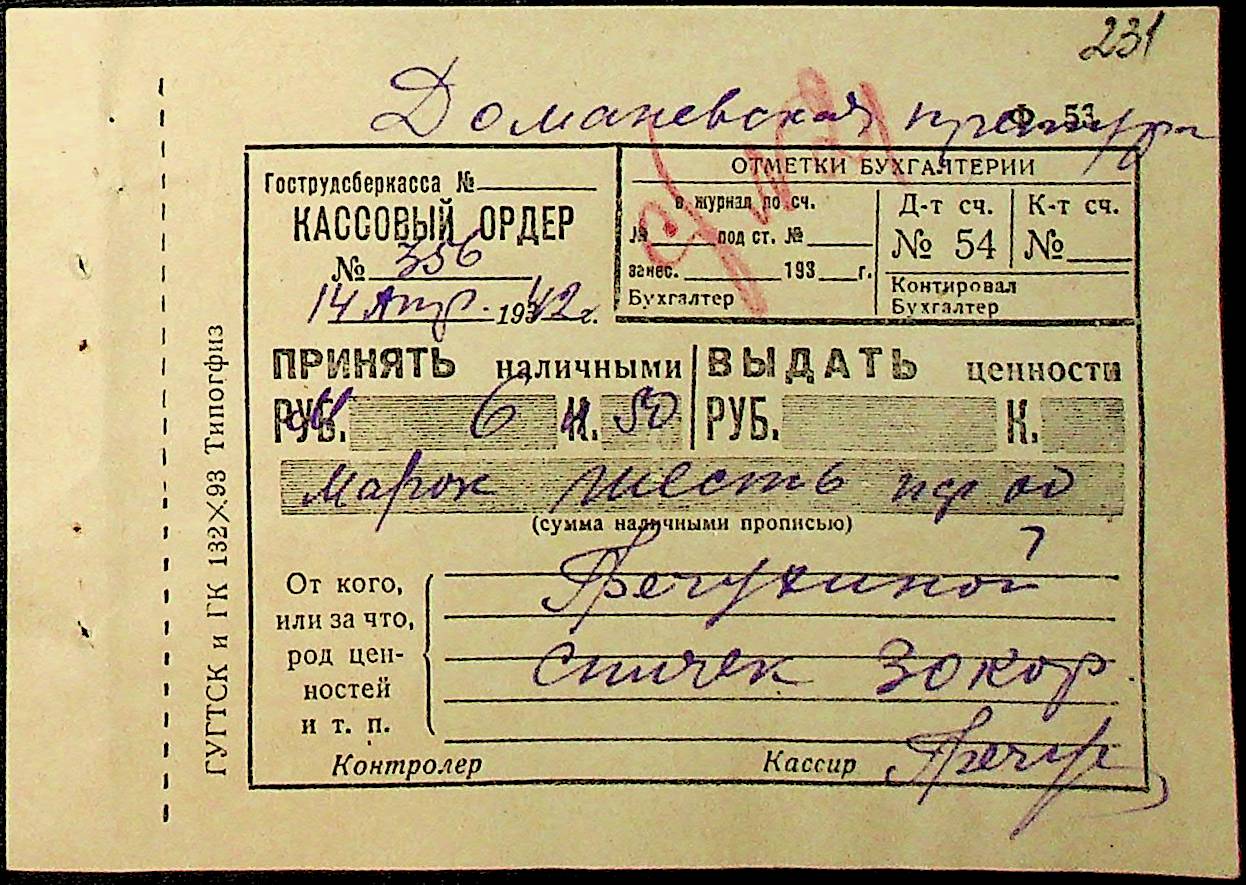 231
Доманевская претура
Ф. 53
Гострудсберкасса №
КАССОВЫЙ ОРДЕР
№ 356
14 Апр. 1942 г.
ОТМЕТКИ БУХГАЛТЕРИИ
в журнал по сч.
№ под ст. №
занес. 193 г.
Бухгалтер
Д-т сч.
№ 54
К-т сч.
№
Контировал
Бухгалтер
ПРИНЯТЬ наличными
РУБ. 6 К. 50
ВЫДАТЬ ценности
РУБ. К.
Марок шесть
(сумма наличными прописью)
От кого,
или за что,
род цен-
ностей
и т. п.
спичек 30 кор
Контролер
Кассир
ГУГТСК и ГК 132×93 Типогфиз